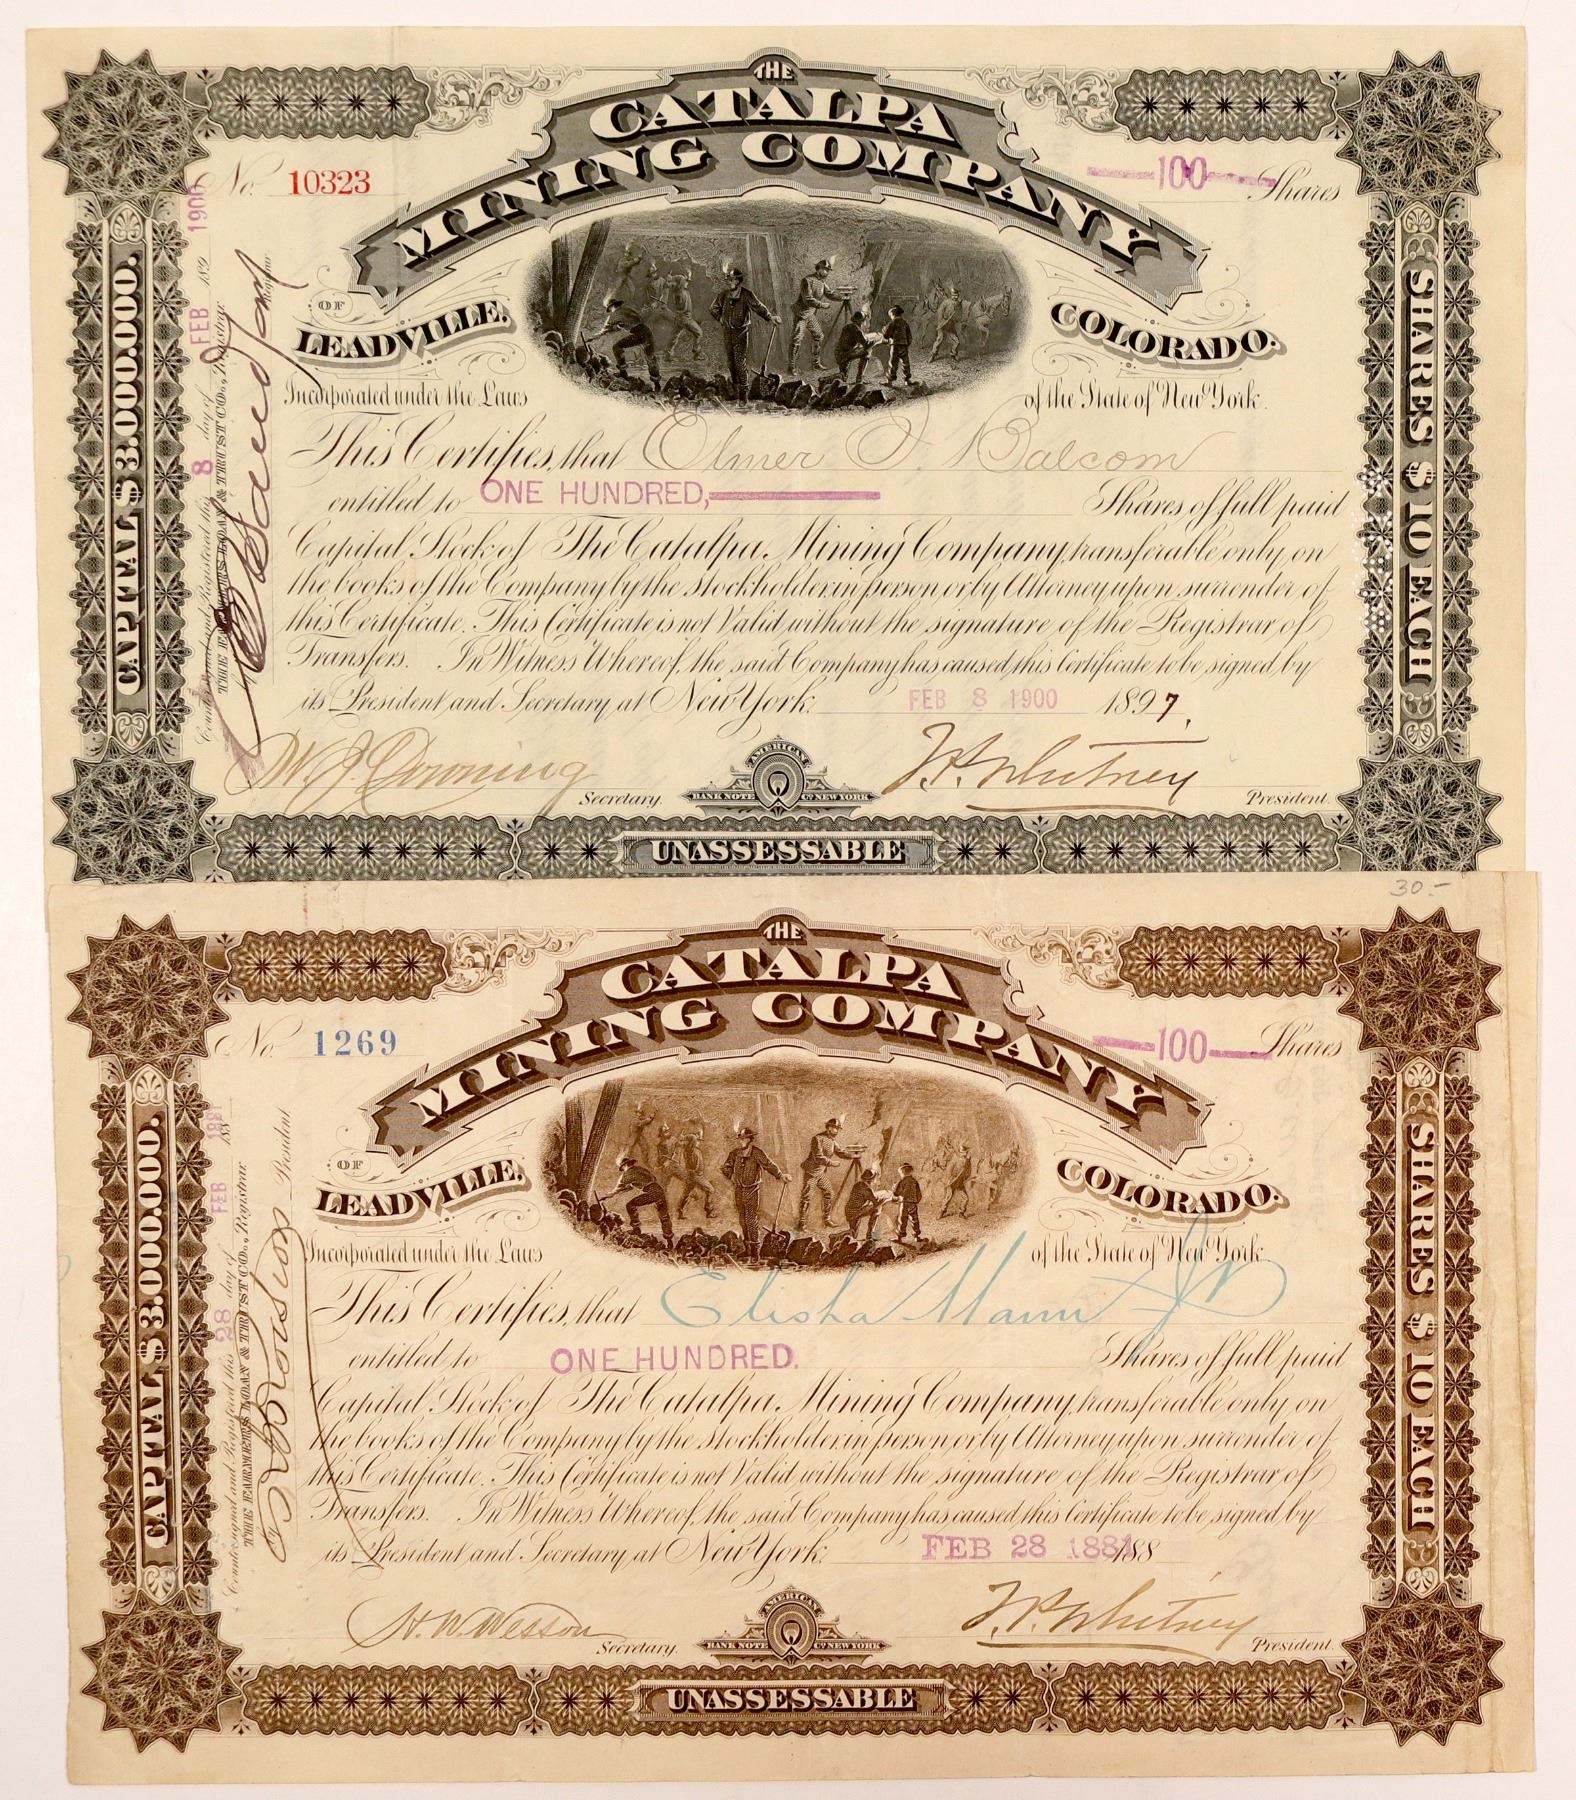 THE
CATALPA
MINING COMPANY
No. 10323
100 Shares
OF
LEADVILLE, COLORADO.
Incorporated under the Laws of the State of New York.
CAPITAL $3.000.000.
SHARES $10 EACH
Countersigned and Registered this 8 day of FEB 189 1900
THE FARMERS LOAN & TRUST CO., Registrar.
Registrar
This Certifies, that Elmer J Balcom
entitled to ONE HUNDRED, Shares of full paid
Capital Stock of The Catalpa Mining Company, transferable only on
the books of the Company by the stockholder, in person or by Attorney upon surrender of
this Certificate. This Certificate is not Valid without the signature of the Registrar of
Transfers. In Witness Whereof, the said Company has caused this Certificate to be signed by
its President and Secretary, at New York, FEB 8 1900 1897.
W. J. Downing Secretary.
AMERICAN
BANK NOTE Co NEW YORK
J. P. Whitney President.
UNASSESSABLE
30.-
THE
CATALPA
MINING COMPANY
No. 1269
100 Shares
OF
LEADVILLE, COLORADO.
Incorporated under the Laws of the State of New York
CAPITAL $3.000.000.
SHARES $10 EACH
Countersigned and Registered this 28 day of FEB 1881 188
THE FARMERS LOAN & TRUST CO., Registrar.
President
This Certifies, that Elisha Mann Jr
entitled to ONE HUNDRED. Shares of full paid
Capital Stock of The Catalpa Mining Company, transferable only on
the books of the Company by the stockholder, in person or by Attorney upon surrender of
this Certificate. This Certificate is not Valid without the signature of the Registrar of
Transfers. In Witness Whereof, the said Company has caused this Certificate to be signed by
its President and Secretary, at New York, FEB 28 1881 188
H. W. Wesson Secretary.
AMERICAN
BANK NOTE Co NEW YORK
J. P. Whitney President.
UNASSESSABLE